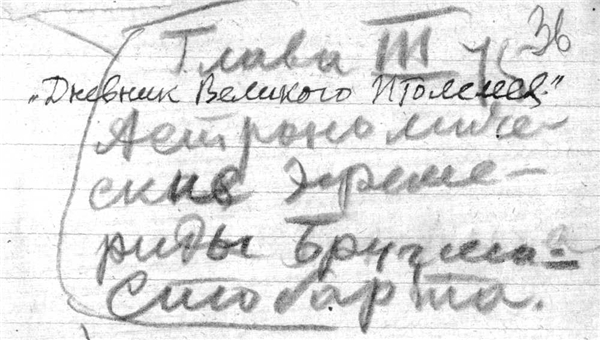 36
Глава III
„Дневник Великого Птолемея."
Астрономиче-
ские Эфеме-
риды Бругша-
Стобарта.